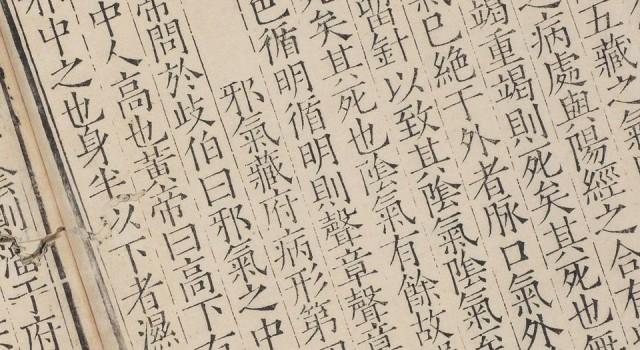 五藏之氣
之病處與陽經之合有
竭重竭則死矣其死也無
氣已絕于外者脉口氣外
留針以致其陰氣陰氣至
死矣其死也陰氣有餘故
色循明循明則聲章聲章
邪氣藏府病形第四
帝問於歧伯曰邪氣之中
中人高也黃帝曰高下有
邪中之也身半以下者濕
則溜于府